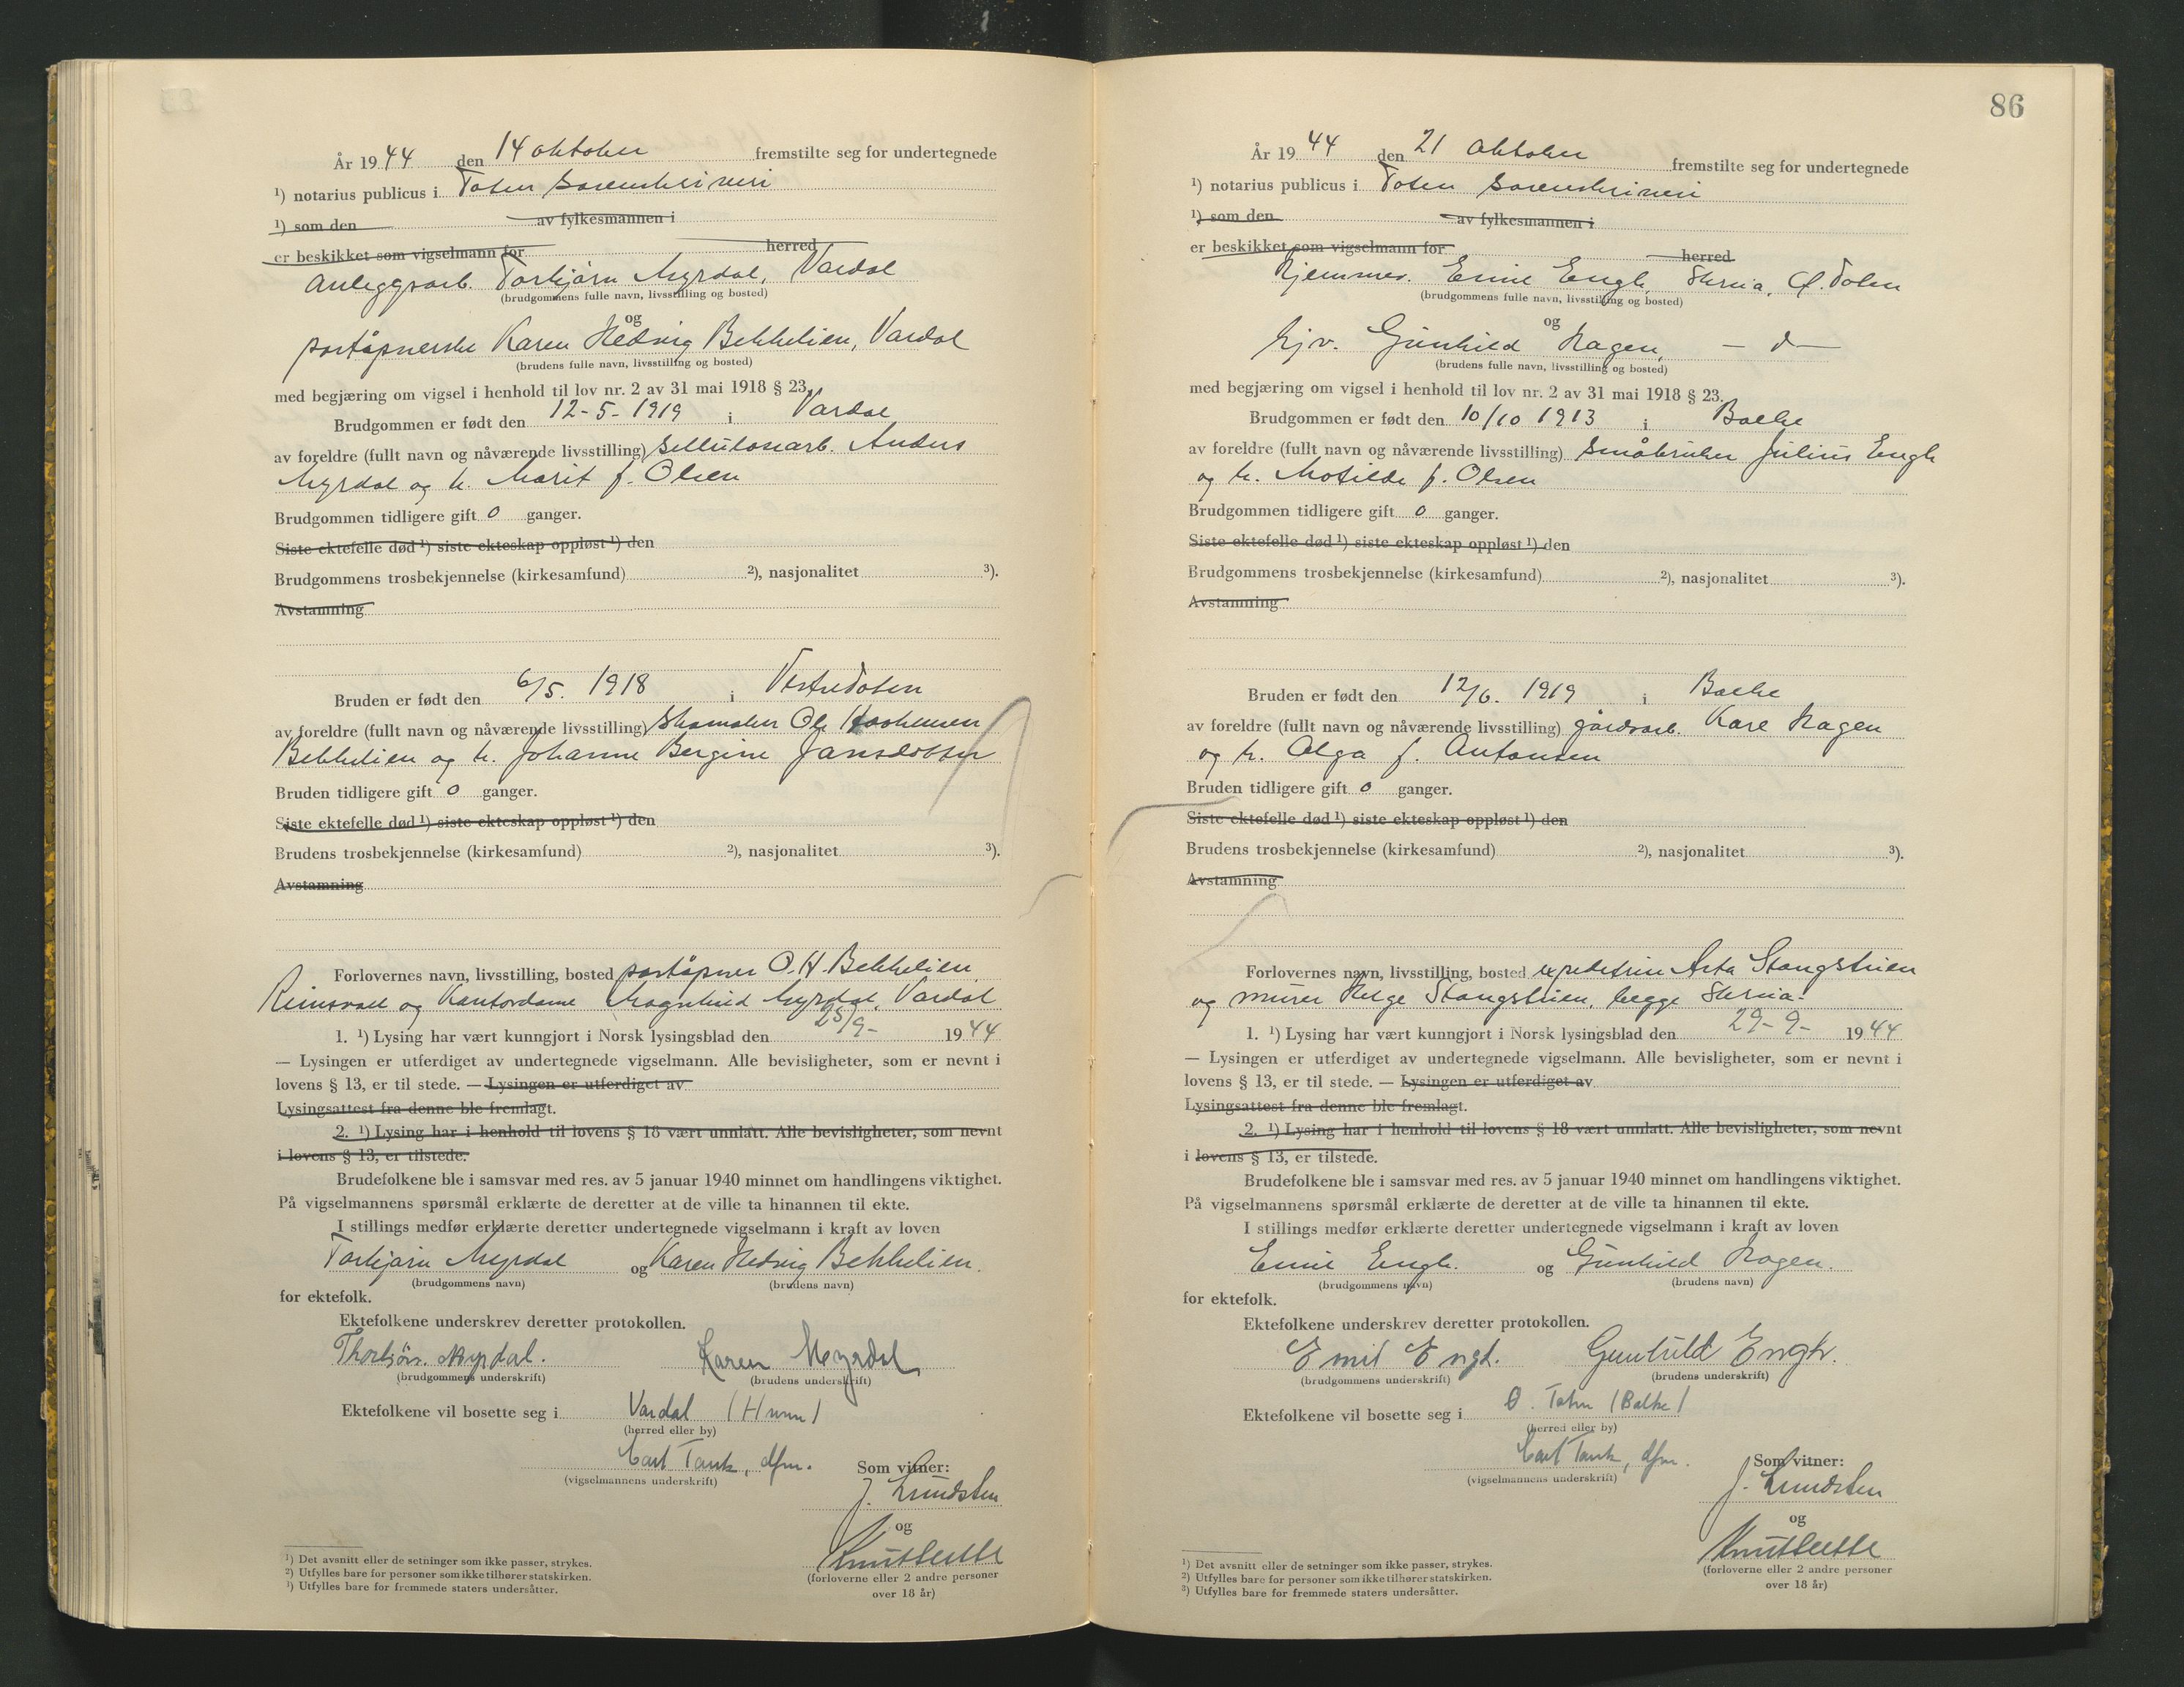 År 1944 den 14 oktober fremstilte seg for undertegnede
¹) notarius publicus i Toten sorenskriveri
¹) som den av fylkesmannen i
er beskikket som vigselmann for herred
anleggsarb. Torbjørn Myrdal, Vardal
(brudgommens fulle navn, livsstilling og bosted)
og
poståpnerske Karen Hedvig Bekkelien, Vardal
(brudens fulle navn, livsstilling og bosted)
med begjæring om vigsel i henhold til lov nr. 2 av 31 mai 1918 § 23.
Brudgommen er født den 12-5-1919 i Vardal
av foreldre (fullt navn og nåværende livsstilling) sellulosearb. Anders
Myrdal og h. Marit f. Olsen
Brudgommen tidligere gift 0 ganger.
Siste ektefelle død ¹) siste ekteskap oppløst ¹) den
Brudgommens trosbekjennelse (kirkesamfund) ²), nasjonalitet ³).
Avstamning
Bruden er født den 6/5. 1918 i Vestre Toten
av foreldre (fullt navn og nåværende livsstilling) skomaker Ole
Bekkelien og h. Johanne Bergine Jansdotter
Bruden tidligere gift 0 ganger.
Siste ektefelle død ¹) siste ekteskap oppløst ¹) den
Brudens trosbekjennelse (kirkesamfund) ²), nasjonalitet ³).
Avstamning
Forlovernes navn, livsstilling, bosted poståpner O.H. Bekkelien
Reinsvoll og Kontordame Magnhild Myrdal, Vardal
1. ¹) Lysing har vært kunngjort i Norsk lysingsblad den 25/9- 1944
— Lysingen er utferdiget av undertegnede vigselmann. Alle bevisligheter, som er nevnt i
lovens § 13, er til stede. — Lysingen er utferdiget av
Lysingsattest fra denne ble fremlagt.
2. ¹) Lysing har i henhold til lovens § 18 vært unnlatt. Alle bevisligheter, som nevnt
i lovens § 13, er tilstede.
Brudefolkene ble i samsvar med res. av 5 januar 1940 minnet om handlingens viktighet.
På vigselmannens spørsmål erklærte de deretter at de ville ta hinannen til ekte.
I stillings medfør erklærte deretter undertegnede vigselmann i kraft av loven
Torbjørn Myrdal og Karen Hedvig Bekkelien.
(brudgommens navn) (brudens navn)
for ektefolk.
Ektefolkene underskrev deretter protokollen.
Thorbjörn Myrdal. Karen Myrdal
(brudgommens underskrift) (brudens underskrift)
Ektefolkene vil bosette seg i Vardal (Hunn)
(herred eller by)
Carl Tank, dfm. Som vitner:
(vigselmannens underskrift) J. Lundsten
og
(forloverne eller 2 andre personer
over 18 år)
¹) Det avsnitt eller de setninger som ikke passer, strykes.
²) Utfylles bare for personer som ikke tilhører statskirken.
³) Utfylles bare for fremmede staters undersåtter.
86
År 1944 den 21 oktober fremstilte seg for undertegnede
¹) notarius publicus i Toten sorenskriveri
¹) som den av fylkesmannen i
er beskikket som vigselmann for herred
Hjemmev. Emil Engh, Skreia, Ø. Toten
(brudgommens fulle navn, livsstilling og bosted)
og
Hjv. Gunhild Hagen, — d —
(brudens fulle navn, livsstilling og bosted)
med begjæring om vigsel i henhold til lov nr. 2 av 31 mai 1918 § 23.
Brudgommen er født den 10/10 1913 i Balke
av foreldre (fullt navn og nåværende livsstilling) Småbruker Julius Engh
og h. Matilde f. Olsen
Brudgommen tidligere gift 0 ganger.
Siste ektefelle død ¹) siste ekteskap oppløst ¹) den
Brudgommens trosbekjennelse (kirkesamfund) ²), nasjonalitet ³).
Avstamning
Bruden er født den 12/6. 1919 i Balke
av foreldre (fullt navn og nåværende livsstilling) gårdsarb. Kåre Hagen
og h. Olga f. Antonsen
Bruden tidligere gift 0 ganger.
Siste ektefelle død ¹) siste ekteskap oppløst ¹) den
Brudens trosbekjennelse (kirkesamfund) ²), nasjonalitet ³).
Avstamning
Forlovernes navn, livsstilling, bosted expeditrise Asta Stangstuen
og murer Helge Stangstuen, begge Skreia.
1. ¹) Lysing har vært kunngjort i Norsk lysingsblad den 29-9- 1944
— Lysingen er utferdiget av undertegnede vigselmann. Alle bevisligheter, som er nevnt i
lovens § 13, er til stede. — Lysingen er utferdiget av
Lysingsattest fra denne ble fremlagt.
2. ¹) Lysing har i henhold til lovens § 18 vært unnlatt. Alle bevisligheter, som nevnt
i lovens § 13, er tilstede.
Brudefolkene ble i samsvar med res. av 5 januar 1940 minnet om handlingens viktighet.
På vigselmannens spørsmål erklærte de deretter at de ville ta hinannen til ekte.
I stillings medfør erklærte deretter undertegnede vigselmann i kraft av loven
Emil Engh. og Gunhild Hagen.
(brudgommens navn) (brudens navn)
for ektefolk.
Ektefolkene underskrev deretter protokollen.
Emil Engh. Gunhild Engh.
(brudgommens underskrift) (brudens underskrift)
Ektefolkene vil bosette seg i Ø. Toten (Balke)
(herred eller by)
Carl Tank, dfm. Som vitner:
(vigselmannens underskrift) J. Lundsten
og
(forloverne eller 2 andre personer
over 18 år)
¹) Det avsnitt eller de setninger som ikke passer, strykes.
²) Utfylles bare for personer som ikke tilhører statskirken.
³) Utfylles bare for fremmede staters undersåtter.